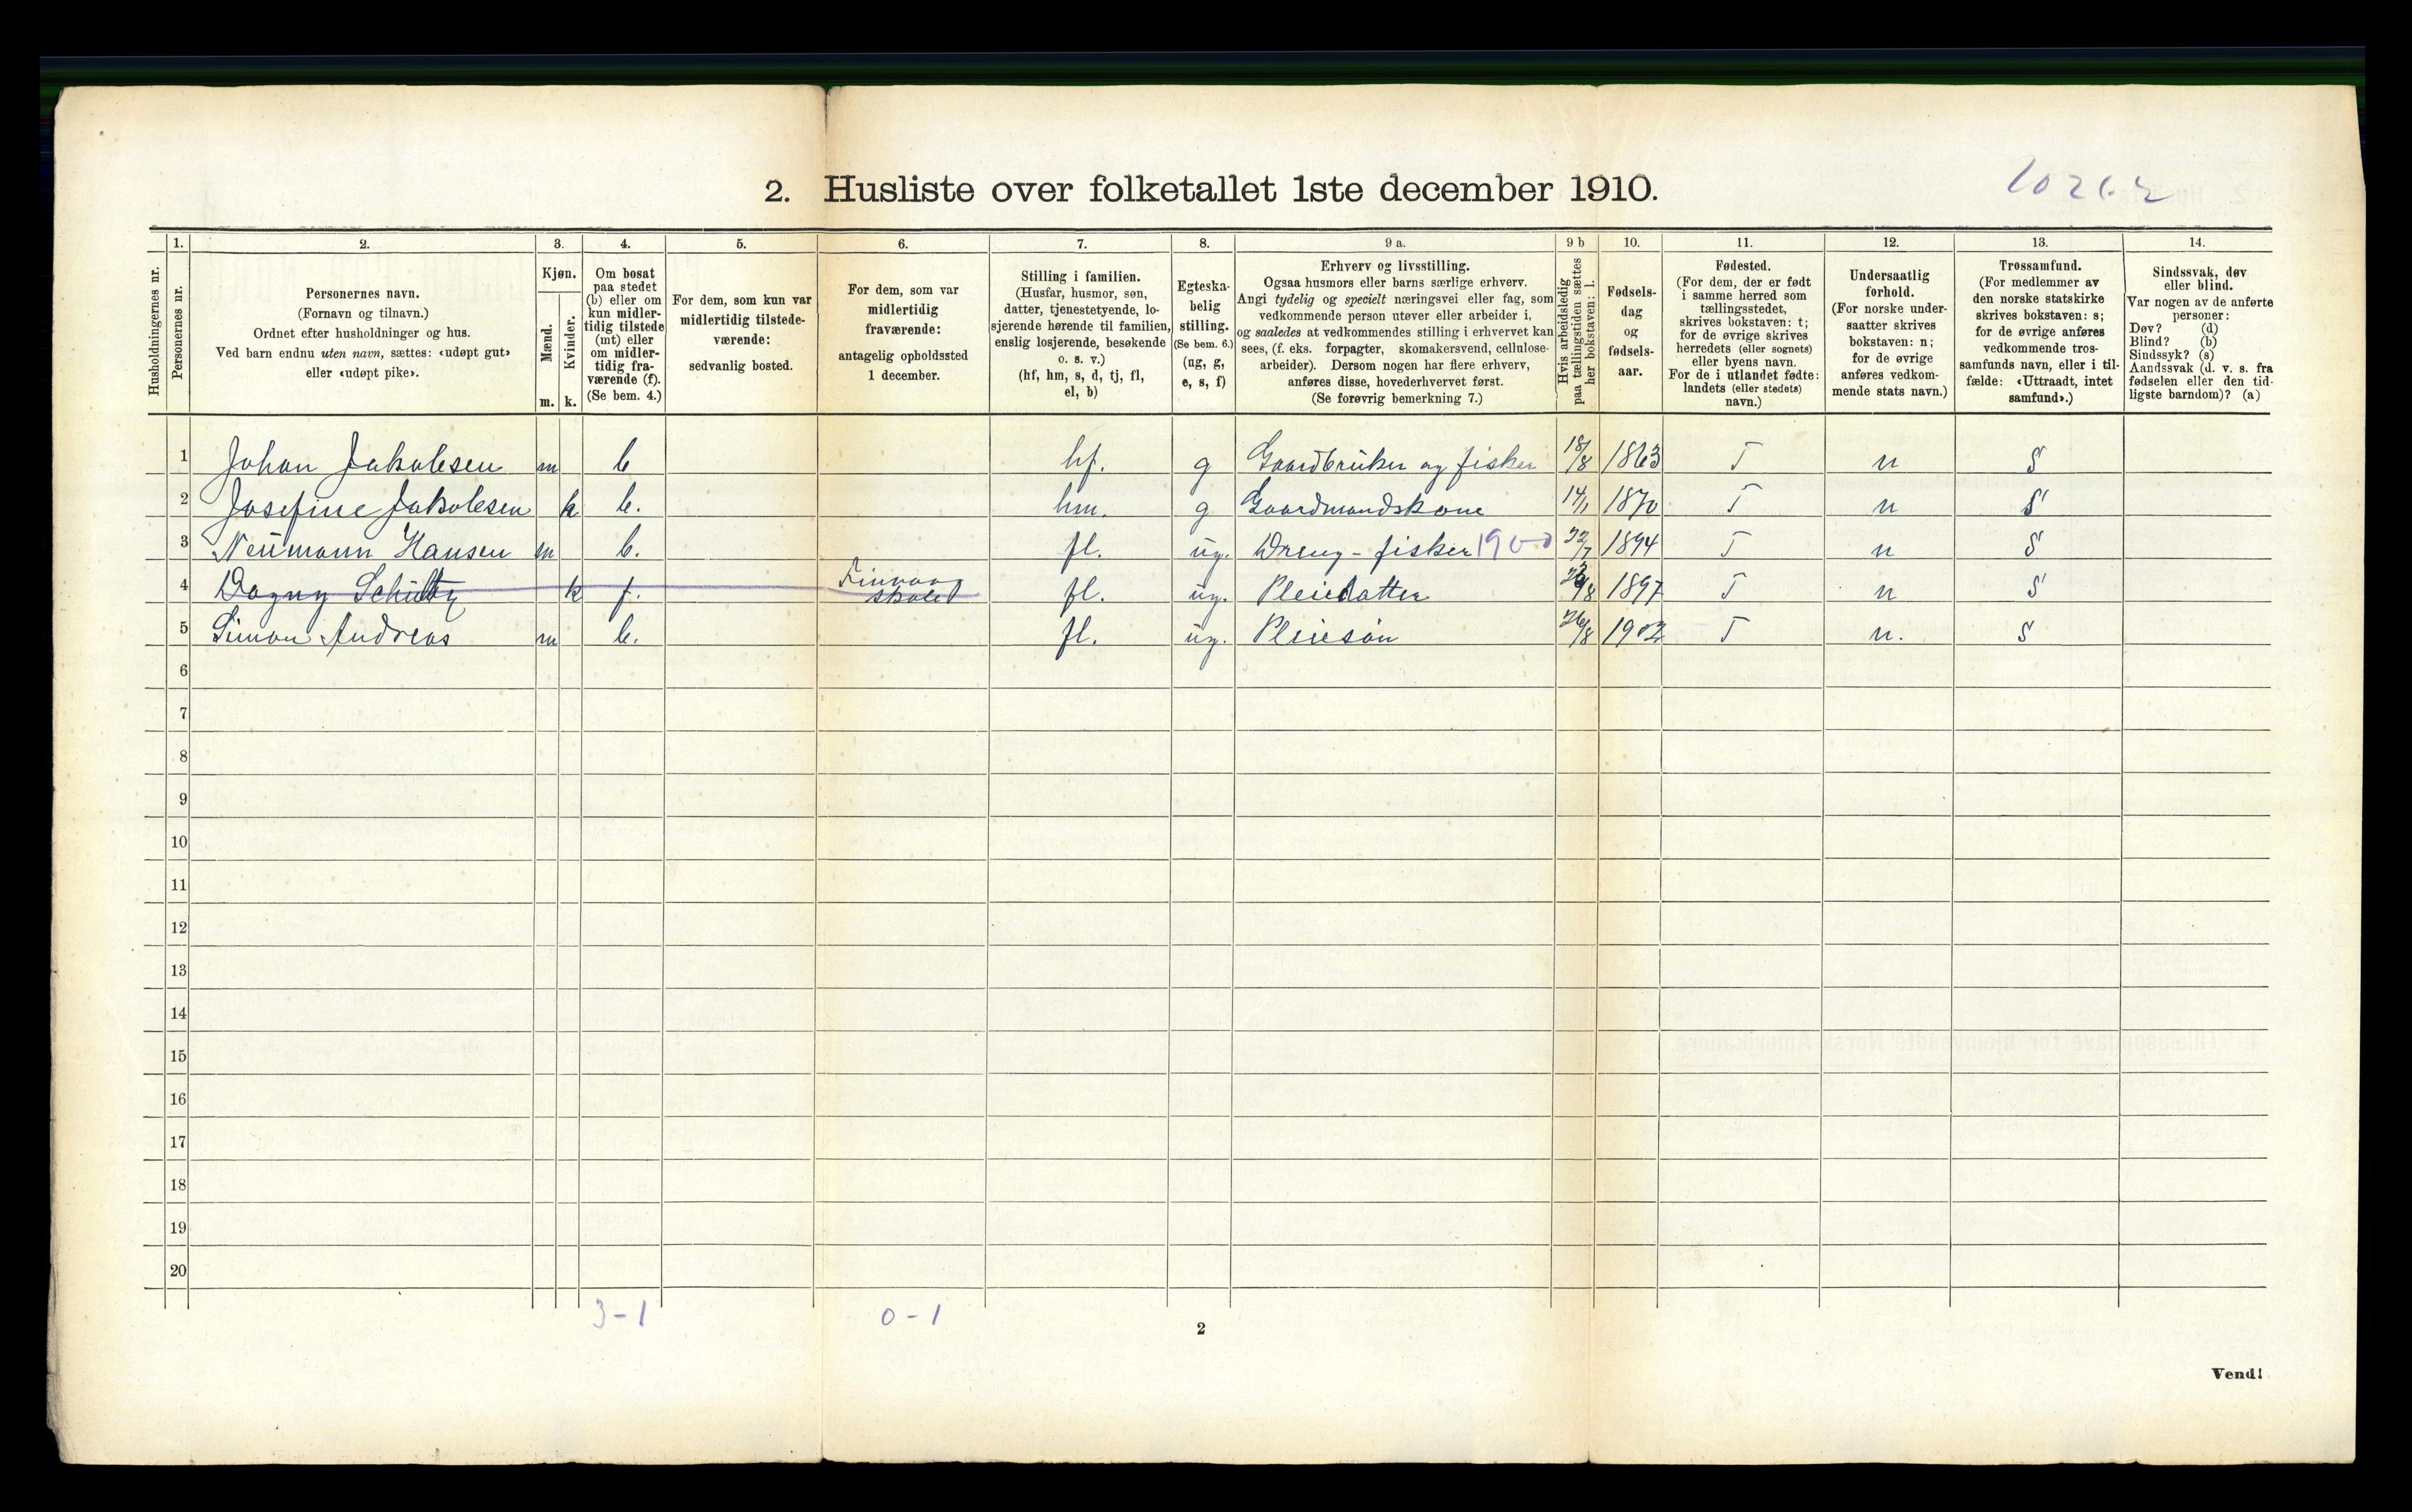 2. Husliste over folketallet 1ste december 1910.
1. 2. 3. 4. 5. 6. 7. 8. 9 a. 9 b 10. 11. 12. 13. 14.
Husholdningernes nr.
Personernes nr.
Personernes navn.
(Fornavn og tilnavn.)
Ordnet efter husholdninger og hus.
Ved barn endnu uten navn, sættes: «udøpt gut»
eller «udøpt pike».
Kjøn.
Mænd.
Kvinder.
m. k.
Om bosat
paa stedet
(b) eller om
kun midler-
tidig tilstede
(mt) eller
om midler-
tidig fra-
værende (f).
(Se bem. 4.)
For dem, som kun var
midlertidig tilstede-
værende:
sedvanlig bosted.
For dem, som var
midlertidig
fraværende:
antagelig opholdssted
1 december.
Stilling i familien.
(Husfar, husmor, søn,
datter, tjenestetyende, lo-
sjerende hørende til familien,
enslig losjerende, besøkende
o. s. v.)
(hf, hm, s, d, tj, fl,
el, b)
Egteska-
belig
stilling.
(Se bem. 6.)
(ug, g,
e, s, f)
Erhverv og livsstilling.
Ogsaa husmors eller barns særlige erhverv.
Angi tydelig og specielt næringsvei eller fag, som
vedkommende person utøver eller arbeider i,
og saaledes at vedkommendes stilling i erhvervet kan
sees, (f. eks. forpagter, skomakersvend, cellulose-
arbeider). Dersom nogen har flere erhverv,
anføres disse, hovederhvervet først.
(Se forøvrig bemerkning 7.)
Hvis arbeidsledig
paa tællingstiden sættes
her bokstaven: l.
Fødsels-
dag
og
fødsels-
aar.
Fødested.
(For dem, der er født
i samme herred som
tællingsstedet,
skrives bokstaven: t;
for de øvrige skrives
herredets (eller sognets)
eller byens navn.
For de i utlandet fødte:
landets (eller stedets)
navn.)
Undersaatlig
forhold.
(For norske under-
saatter skrives
bokstaven: n;
for de øvrige
anføres vedkom-
mende stats navn.)
Trossamfund.
(For medlemmer av
den norske statskirke
skrives bokstaven: s;
for de øvrige anføres
vedkommende tros-
samfunds navn, eller i til-
fælde: «Uttraadt, intet
samfund».)
Sindssvak, døv
eller blind.
Var nogen av de anførte
personer:
Døv? (d)
Blind? (b)
Sindssyk? (s)
Aandssvak (d. v. s. fra
fødselen eller den tid-
ligste barndom)? (a)
1 Johan Jakobsen m b hf. g Gaardbruker og fisker 18/8 1863 T n S
2 Josefine Jakobsen k b. hm. g Gaardmandskone 14/1 1870 T n S
3 Neumann Hansen m b. fl. ug. Dreng - fisker 1900 1894 T n S
4 Dagny Schultz k f. skole fl. ug. Pleiedatter 1897 T n S
5 Simon Andreas m b. fl. ug. Pleiesøn 26/8 1902 T n. S
6
7
8
9
10
11
12
13
14
15
16
17
18
19
20
3-1 0-1
2
Vend!